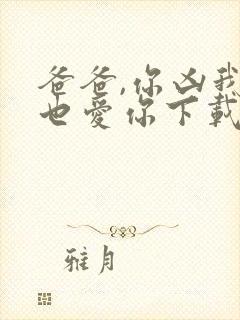 爸爸,你凶我
也爱你下载
雅月